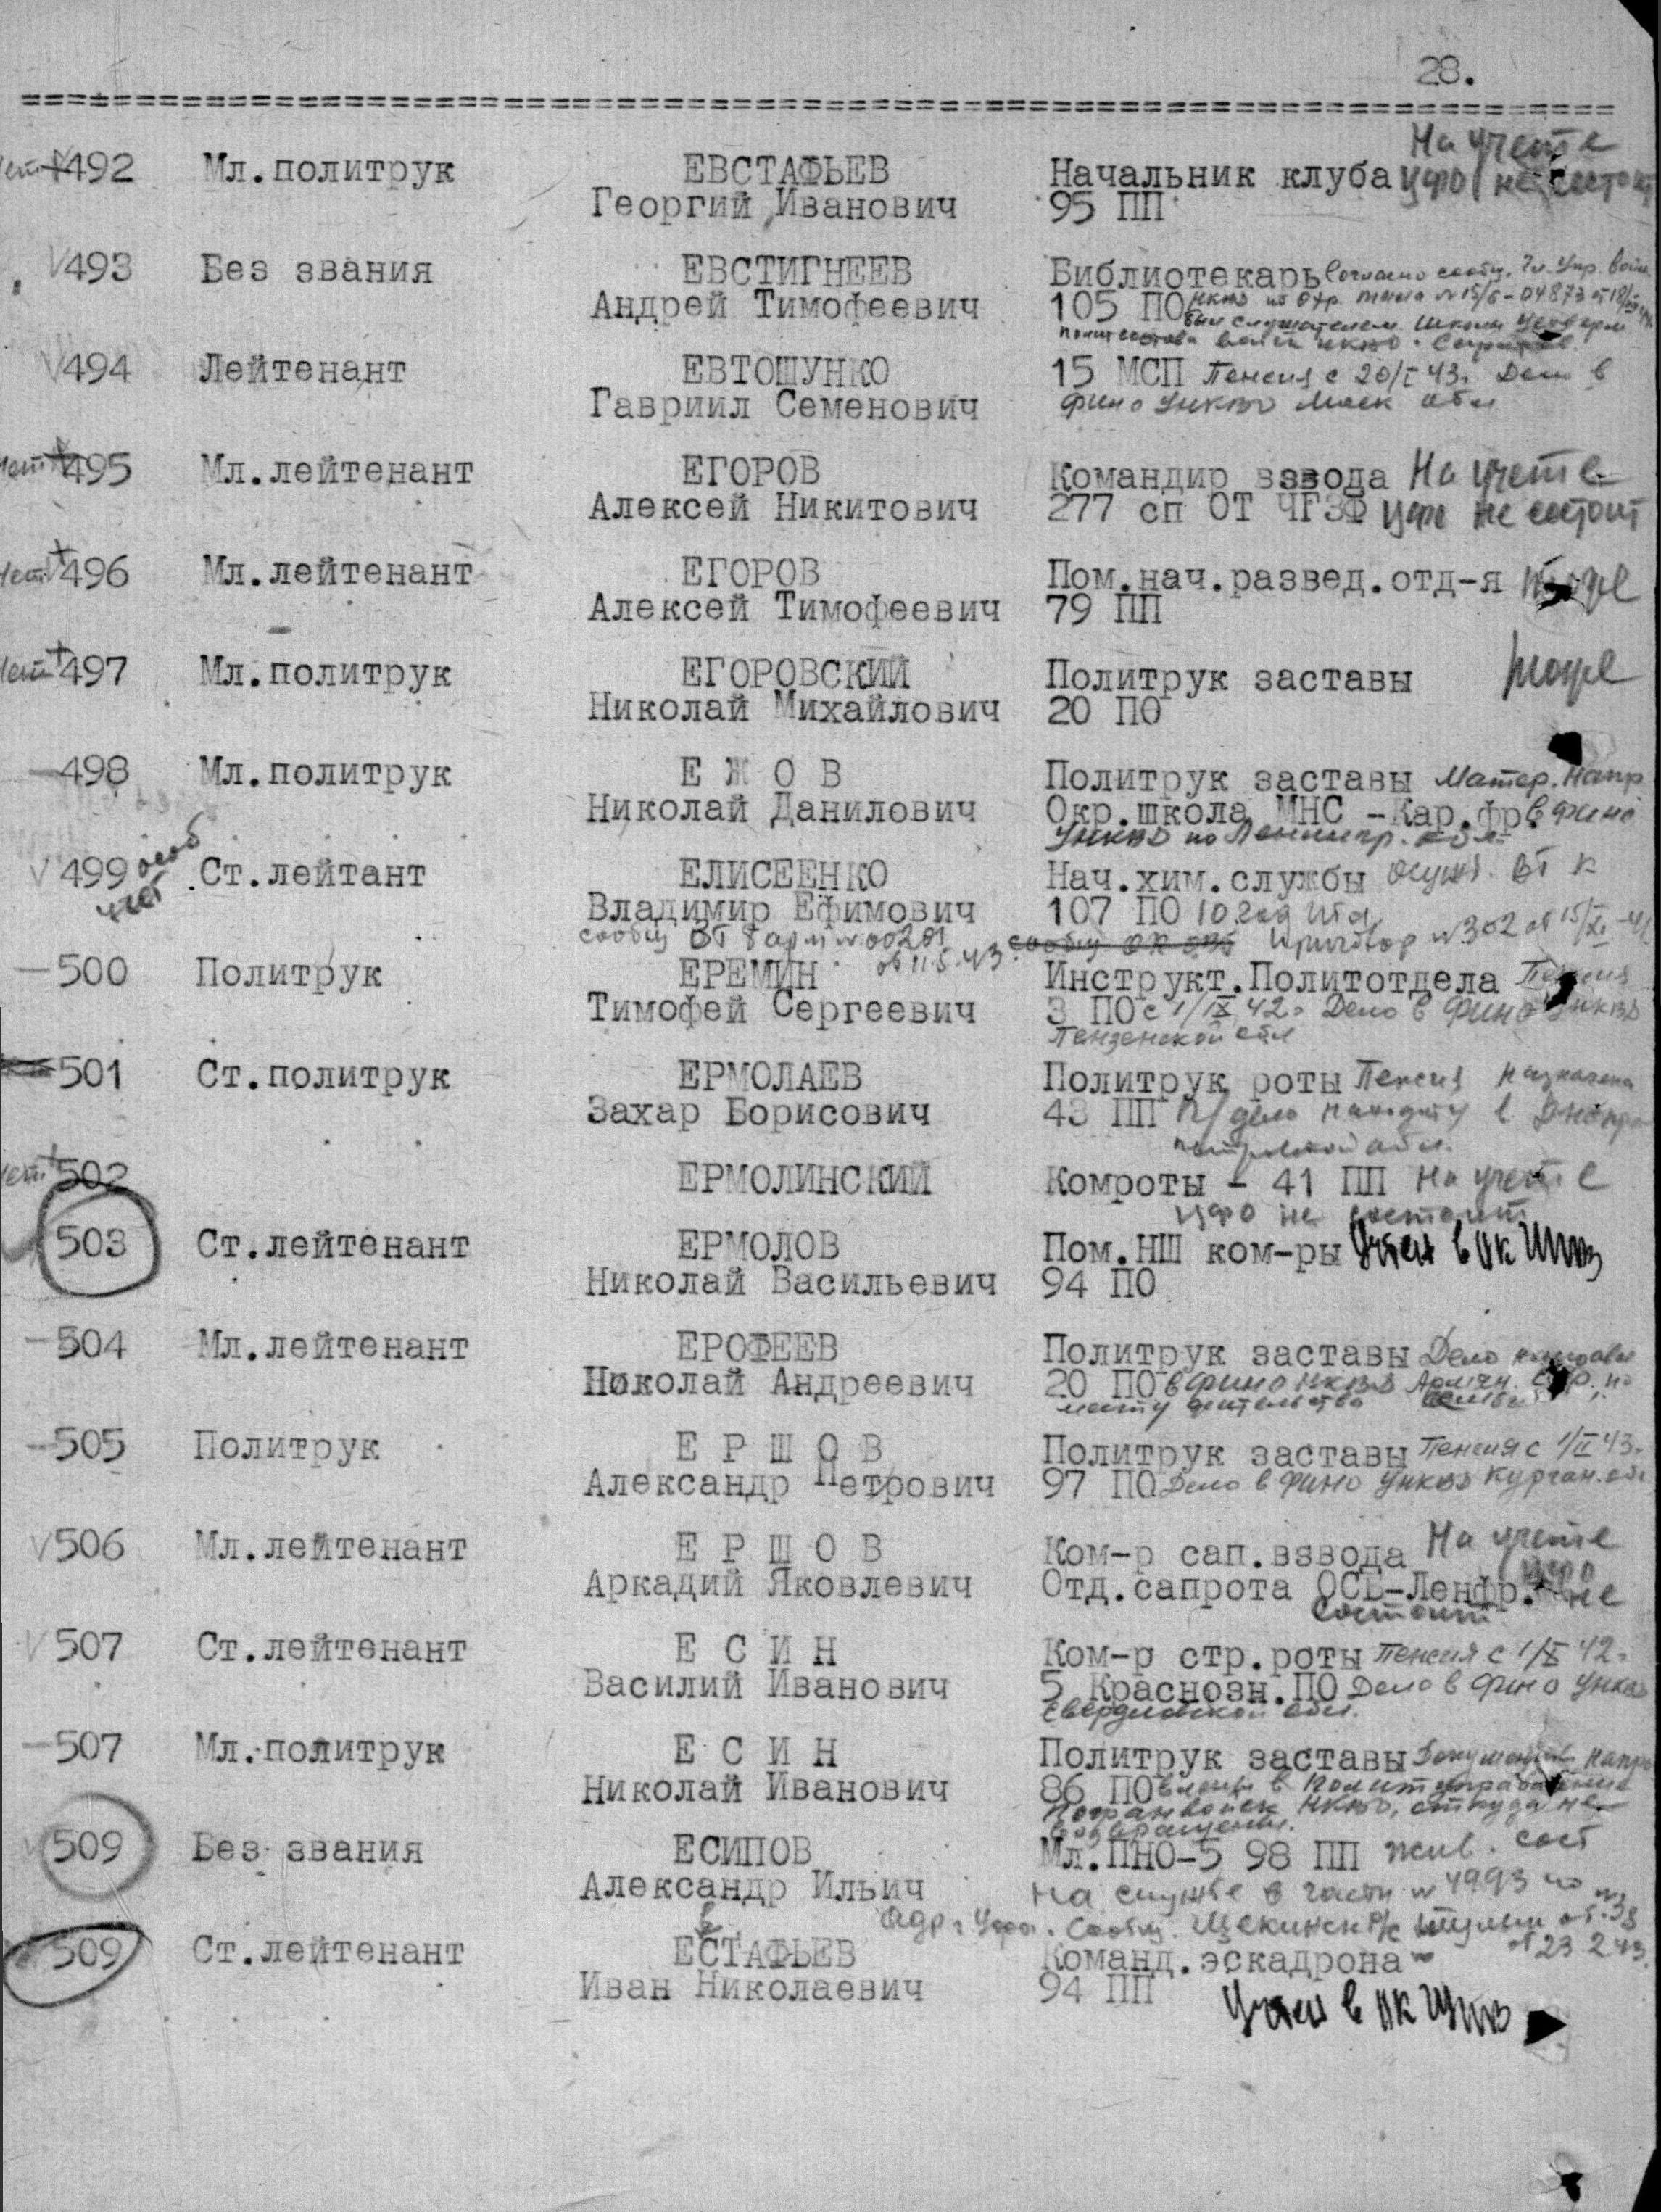 28.
492 Мл.политрук ЕВСТАФЬЕВ Начальник клуба На учете
Георгий Иванович 95 ПП ЦФО не состоит
493 Без звания ЕВСТИГНЕЕВ Библиотекарь Согласно сообщ. Гл. Упр. Войск
Андрей Тимофеевич 105 ПО НКВД по охр. тыла
был слушателем школы
политсостава войск НКВД.
494 Лейтенант ЕВТОШУНКО 15 МСП Пенсия с 20/I 43г. Дело в
Гавриил Семенович фино УНКВД Моск обл
495 Мл.лейтенант ЕГОРОВ Командир взвода На учете
Алексей Никитович 277 сп ОТ ЧГЗФ ЦФО не состоит
496 Мл.лейтенант ЕГОРОВ Пом.нач.развед.отд-я
Алексей Тимофеевич 79 ПП
497 Мл.политрук ЕГОРОВСКИЙ Политрук заставы тоже
Николай Михайлович 20 ПО
498 Мл.политрук Е Ж О В Политрук заставы Матер. напр
Николай Данилович Окр.школа МНС -Кар.фр. в фино
УНКВД по Ленингр. обл.
499 особ учет Ст.лейтант ЕЛИСЕЕНКО Нач.хим.службы Осужд. ВТ к
Владимир Ефимович 107 ПО 10 год итл
сообщ ВТ 8 арм №00201 Приговор №302 от 15/XI-41
от 11.5.43
500 Политрук ЕРЕМИН Инструкт.Политотдела Пенсия
Тимофей Сергеевич 3 ПО с 1/IX 42г Дело в Фино УНКВД
Пензенской обл
501 Ст.политрук ЕРМОЛАЕВ Политрук роты Пенсия назначена
Захар Борисович 43 ПП П/дело находится в Днепро
петровской обл.
502 ЕРМОЛИНСКИЙ Комроты - 41 ПП На учете
ЦФО не состоит
503 Ст.лейтенант ЕРМОЛОВ Пом.НШ ком-ры Учтен в ОК
Николай Васильевич 94 ПО
504 Мл.лейтенант ЕРОФЕЕВ Политрук заставы Дело направл
Николай Андреевич 20 ПО в Фино НКВД Армян. ССР по
месту жительства семьи
505 Политрук Е Р Ш О В Политрук заставы Пенсия с 1/II 43г
Александр Петрович 97 ПО Дело в Фино УНКВД Курган. обл
506 Мл.лейтенант Е Р Ш О В Ком-р сап.взвода На учете
Аркадий Яковлевич Отд.сапрота ОСБ-Ленфр. ЦФО не
состоит
507 Ст.лейтенант Е С И Н Ком-р стр.роты Пенсия с 1/X 42г
Василий Иванович 5 Краснозн.ПО Дело в Фино УНКВД
Свердловской обл.
507 Мл.политрук Е С И Н Политрук заставы Документы напра
Николай Иванович 86 ПО влены в Политуправление
Погранвойск НКВД, откуда не
возвращены.
509 Без звания ЕСИПОВ Мл.ПНО-5 98 ПП
Александр Ильич на службе в части № 4993 по
адр. г Уфа. Сообщ. Щекинск
от 23 2 43.
509 Ст.лейтенант ЕВСТАФЬЕВ Команд.эскадрона
Иван Николаевич 94 ПП
Учтен в ОК